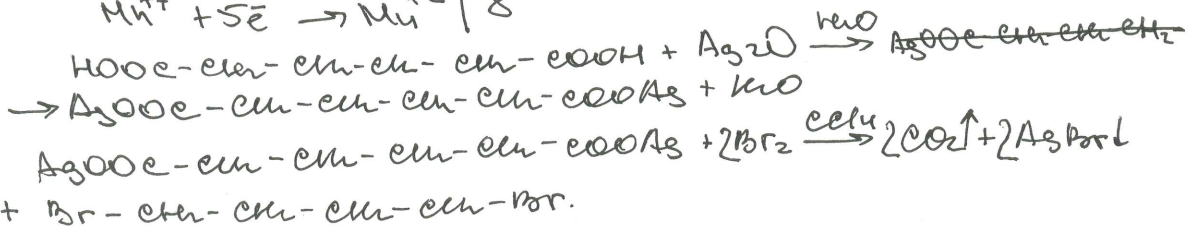 Mn⁺⁷ + 5ē → Mn⁺² | 8
HOOC-CH₂-CH₂-CH₂-CH₂-COOH + Ag₂O →(H₂O)
→ AgOOC-CH₂-CH₂-CH₂-CH₂-COOAg + H₂O
AgOOC-CH₂-CH₂-CH₂-CH₂-COOAg + 2Br₂ →(CCl₄) 2CO₂↑ + 2AgBr↓
+ Br-CH₂-CH₂-CH₂-CH₂-Br.